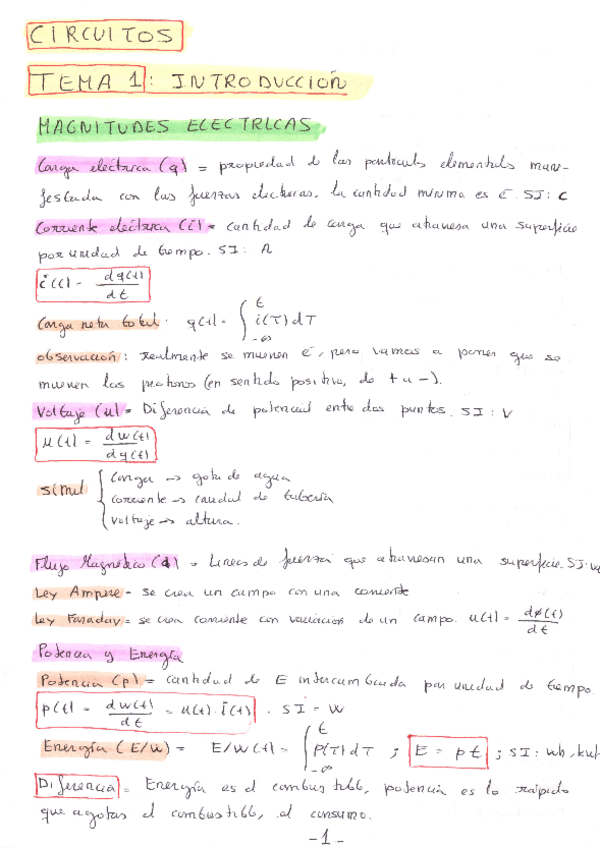 CIRCUITOS
TEMA 1: INTRODUCCIÓN
MAGNITUDES ELECTRICAS
Carga eléctrica (q) = propiedad de las partículas elementales mani-
festada con las fuerzas electricas. la cantidad minima es é. SI: C
Corriente eléctrica (i) = cantidad de carga que atraviesa una superficie
por unidad de tiempo. SI: A
i(t) = dq(t)/dt
Carga neta total: q(t) = ∫_{-∞}^{t} i(T) dT
observación: realmente se mueven é, pero vamos a poner que se
mueven los protones (en sentido positivo, de + a -).
Voltaje (u) = Diferencia de potencial entre dos puntos. SI: V
u(t) = dw(t)/dq(t)
simil { Carga → gota de agua
corriente → caudal de tubería
voltaje → altura.
Flujo Magnético (ϕ) = Lineas de fuerza que atraviesan una superficie. SI: W
Ley Ampere = se crea un campo con una corriente
Ley Faraday = se crea corriente con variación de un campo. u(t) = dϕ(t)/dt
Potencia y Energía
Potencia (p) = cantidad de E intercambiada por unidad de tiempo.
p(t) = dw(t)/dt = u(t) · i(t) . SI = W
Energía (E/w) = E/w(t) = ∫_{-∞}^{t} p(T) dT ; E = p t ; SI: wh, kwh
Diferencia = Energía es el combustible, potencia es lo rápido
que agotas el combustible, el consumo.
-1-